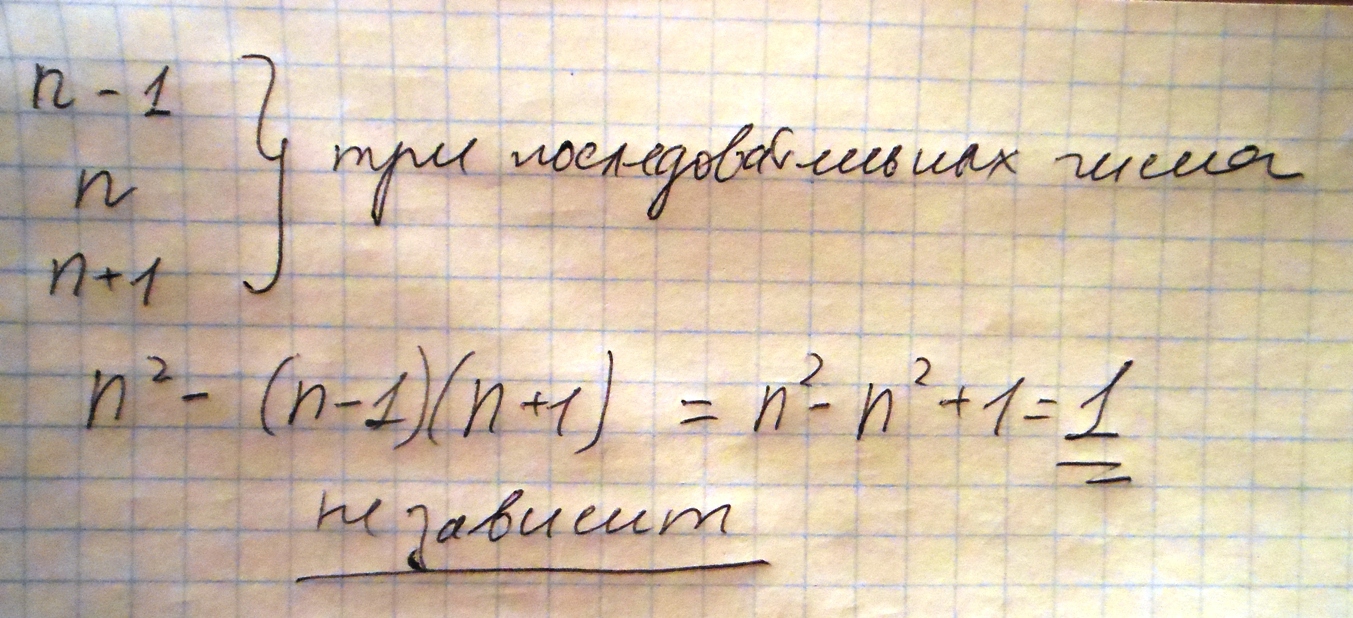 n - 1
n
n+1
} три последовательных числа
n² - (n-1)(n+1) = n² - n² + 1 = 1
не зависит